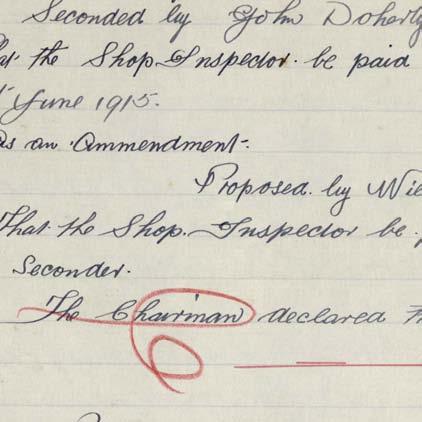 Seconded by John Doherty
the Shop Inspector be paid
June 1915.
as an Ammendment.
Proposed by
That the Shop Inspector be
Seconder.
The Chairman declared